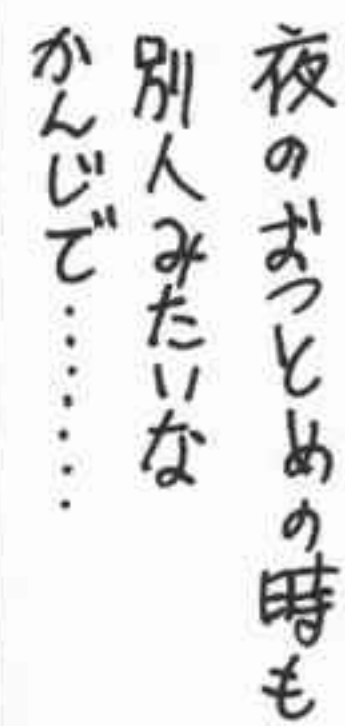 夜のおつとめの時も
別人みたいな
かんじで・・・・・・・